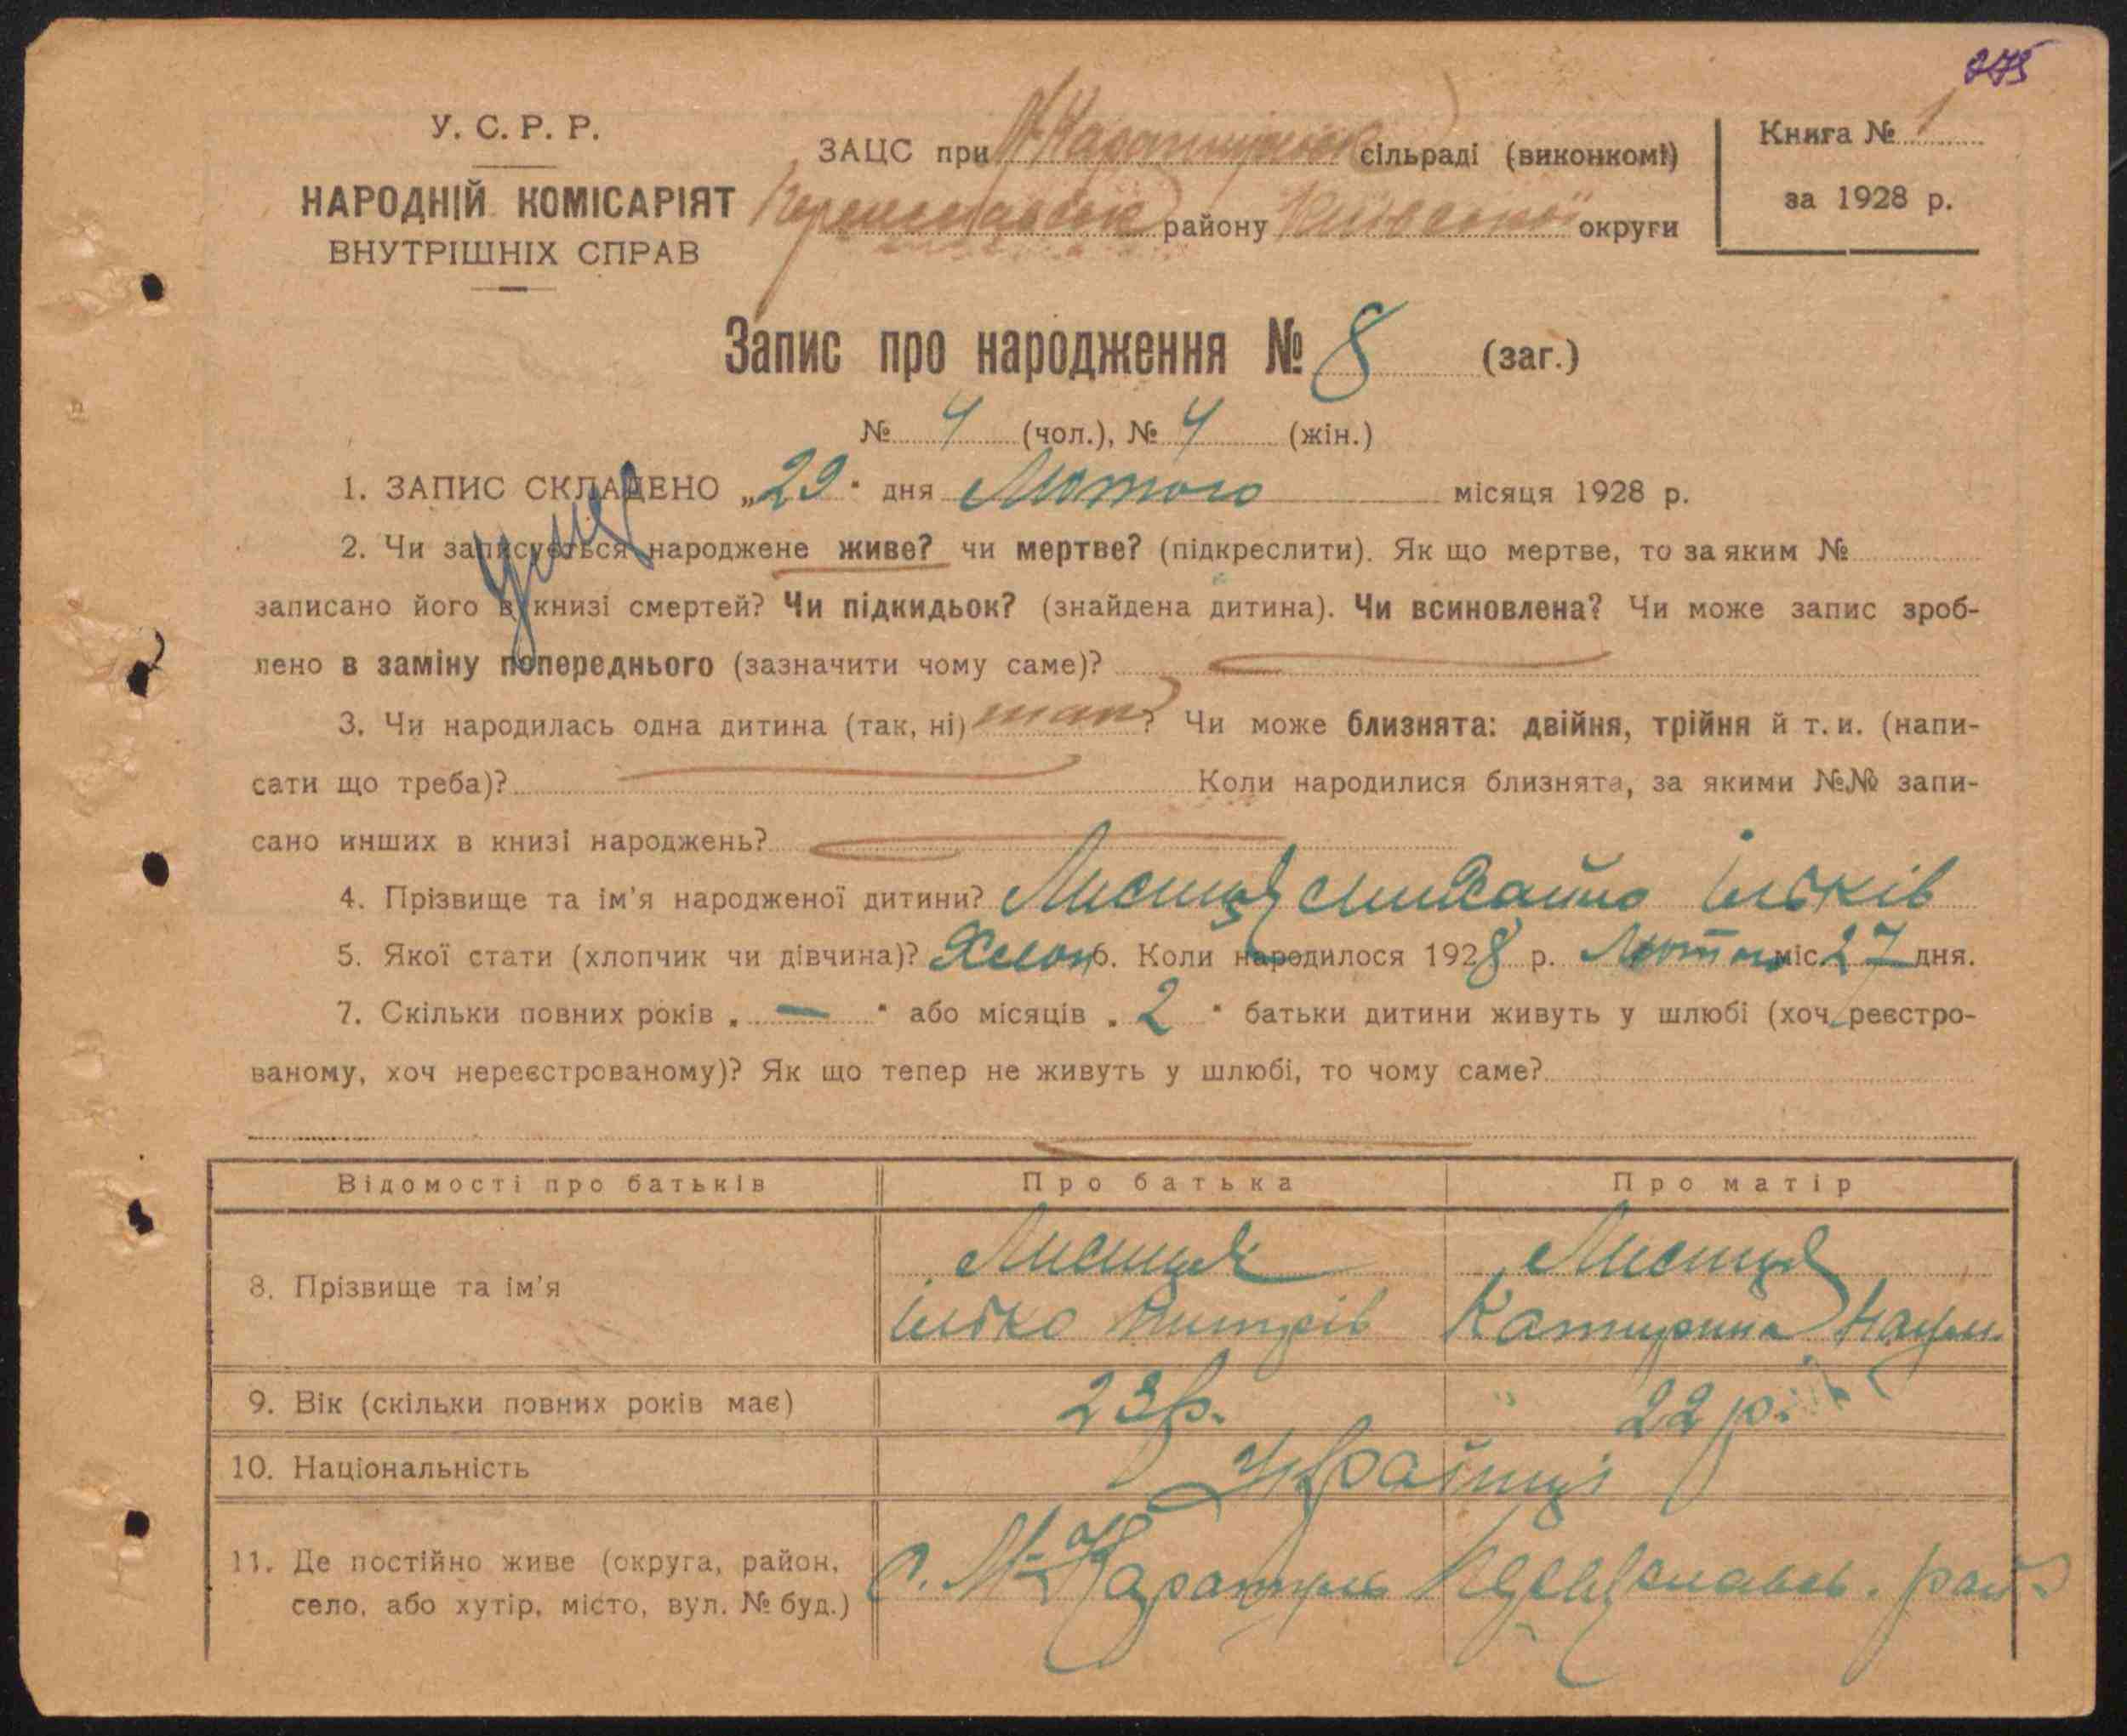 275
У. С. Р. Р.
НАРОДНІЙ КОМІСАРІЯТ
ВНУТРІШНІХ СПРАВ
ЗАЦС при М-Каратульськ сільраді (виконкомі)
Переяславськ району Київської округи
Книга № 1
за 1928 р.
Запис про народження № 8 (заг.)
№ 4 (чол.), № 4 (жін.)
1. ЗАПИС СКЛАДЕНО „29" дня Лютого місяця 1928 р.
умер
2. Чи записується народжене живе? чи мертве? (підкреслити). Як що мертве, то за яким №
записано його в книзі смертей? Чи підкидьок? (знайдена дитина). Чи всиновлена? Чи може запис зроб-
лено в заміну попереднього (зазначити чому саме)?
3. Чи народилась одна дитина (так, ні) так? Чи може близнята: двійня, трійня й т. и. (напи-
сати що треба)? Коли народилися близнята, за якими №№ запи-
сано инших в книзі народжень?
4. Прізвище та ім'я народженої дитини? Лисиця Михайло Ільків
5. Якої стати (хлопчик чи дівчина)? Хлоп 6. Коли народилося 1928 р. Лютого міс. 27 дня.
7. Скільки повних років „ — " або місяців „ 2 " батьки дитини живуть у шлюбі (хоч реєстро-
ваному, хоч нереєстрованому)? Як що тепер не живуть у шлюбі, то чому саме?
Відомості про батьків Про батька Про матір
8. Прізвище та ім'я Лисиця Лисиця
Ілько Дмитрів Катерина Наум.
9. Вік (скільки повних років має) 23 р. 22 р.
10. Національність Українці
11. Де постійно живе (округа, район,
село, або хутір, місто, вул. № буд.) с. М-Каратуль Переяславськ. рай